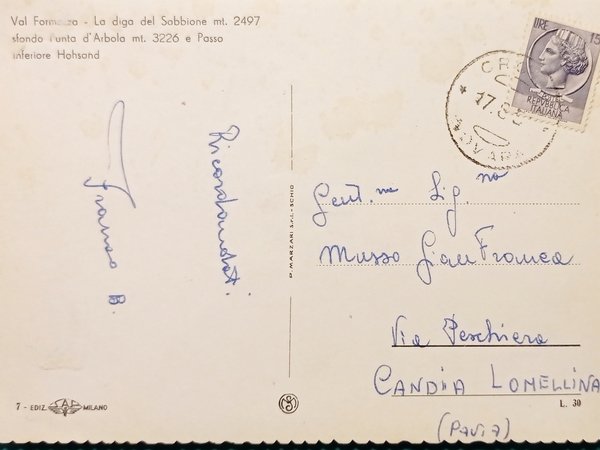 Val Formazza - La diga del Sabbione mt. 2497
sfondo Punta d'Arbola mt. 3226 e Passo
inferiore Hohsand
LIRE 15
REPUBBLICA
ITALIANA
17.8.5
NOVARA
Ricordandoti
Franco B.
Gent.ma Sig.na
Musso GianFranca
Via Peschiera
CANDIA LOMELLINA
(PAVIA)
P. MARZARI S.r.l. - SCHIO
7 - EDIZ. SAF MILANO
L. 30